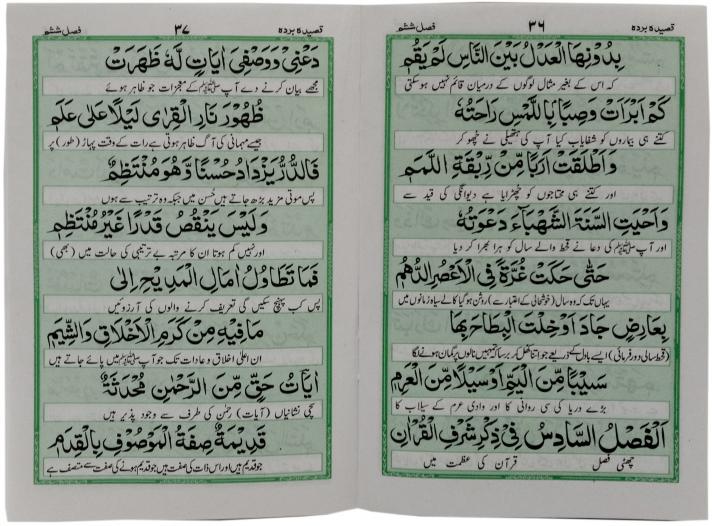 قصیدہ بردہ ۳۶ فصل ششم
بِدُوْنِهَا الْعَدْلُ بَيْنَ النَّاسِ لَمْ يَقُمِ
کہ اس کے بغیر مثال لوگوں کے درمیان قائم نہیں ہوسکتی
كَمْ اَبْرَاَتْ وَصِبًا بِاللَّمْسِ رَاحَتُهٗ
کتنے ہی بیماروں کو شفایاب کیا آپ کی ہتھیلی نے چھو کر
وَاَطْلَقَتْ اَرِبًا مِّنْ رِّبْقَةِ اللَّمَمِ
اور کتنے ہی محتاجوں کو چھڑایا ہے دیوانگی کی قید سے
وَاَحْيَتِ السَّنَةَ الشَّهْبَآءَ دَعْوَتُهٗ
اور آپ ﷺ کی دعا نے قحط والے سال کو ہرا بھرا کر دیا
حَتّٰى حَكَتْ غُرَّةً فِى الْاَعْصُرِ الدُّهُمِ
یہاں تک کہ وہ سال (خوشحالی کے اعتبار سے) روشن ہو گیا کالے سیاہ زمانوں میں
بِعَارِضٍ جَادَ اَوْخِلْتَ الْبِطَاحَ بِهَا
(قحط سالی دور فرمائی) ایسے بادل کے ذریعے جو اتنا کھل کر برسا کہ تمہیں نالوں پر گمان ہونے لگا
سَيْبًا مِّنَ الْيَمِّ اَوْسَيْلًا مِّنَ الْعَرِمِ
بڑے دریا کی سی روانی کا اور وادی عرم کے سیلاب کا
اَلْفَصْلُ السَّادِسُ فِىْ ذِكْرِ شَرَفِ الْقُرْاٰنِ
چھٹی فصل قرآن کی عظمت میں
قصیدہ بردہ ۳۷ فصل ششم
دَعْنِىْ وَوَصْفِىَ اٰيَاتٍ لَّهٗ ظَهَرَتْ
مجھے بیان کرنے دے آپ ﷺ کے معجزات جو ظاہر ہوئے
ظُهُوْرَ نَارِ الْقِرٰى لَيْلًا عَلٰى عَلَمِ
جیسے مہمانی کی آگ ظاہر ہوتی ہے رات کے وقت پہاڑ (طور) پر
فَالدُّرُّ يَزْدَادُ حُسْنًا وَّهُوَ مُنْتَظِمٌ
پس موتی مزید بڑھ جاتے ہیں حسن میں جبکہ وہ ترتیب سے ہوں
وَلَيْسَ يَنْقُصُ قَدْرًا غَيْرَ مُنْتَظِمِ
اور نہیں کم ہوتا ان کا مرتبہ بے ترتیبی کی حالت میں (بھی)
فَمَا تَطَاوُلُ اٰمَالِ الْمَدِيْحِ اِلٰى
پس کب پہنچ سکیں گی تعریف کرنے والوں کی آرزوئیں
مَافِيْهِ مِنْ كَرَمِ الْاَخْلَاقِ وَالشِّيَمِ
ان اعلیٰ اخلاق و عادات تک جو آپ ﷺ میں پائے جاتے ہیں
اٰيَاتُ حَقٍّ مِّنَ الرَّحْمٰنِ مُحْدَثَةٌ
سچی نشانیاں (آیات) رحمٰن کی طرف سے وجود پذیر ہیں
قَدِيْمَةٌ صِفَةُ الْمَوْصُوْفِ بِالْقِدَمِ
جو قدیم ہیں اور اس ذات کی صفت ہیں جو قدیم ہونے کی صفت سے متصف ہے